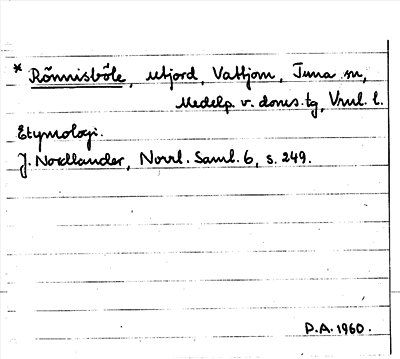 * Rönnisböle, utjord, Vattjom, Tuna sn,
Medelp. v. doms.tg, Vnrl. l.
Etymologi.
J. Nordlander, Norrl. Saml. 6, s. 249.
P.A. 1960.